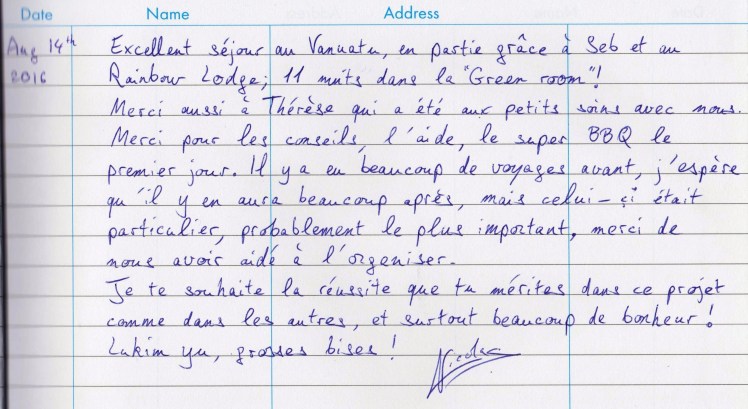 Date Name Address
Aug 14th Excellent séjour au Vanuatu, en partie grâce à Seb et au
2016 Rainbow Lodge; 11 nuits dans la "Green room"!
Merci aussi à Thérèse qui a été aux petits soins avec nous.
Merci pour les conseils, l'aide, le super BBQ le
premier jour. Il y a eu beaucoup de voyages avant, j'espère
qu'il y en aura beaucoup après, mais celui-çi était
particulier, probablement le plus important, merci de
nous avoir aidé à l'orgeniser.
Je te souhaite la réussite que tu mérites dans ce projet
comme dans les autres, et surtout beaucoup de bonheur!
Lukim yu, grosses bises!